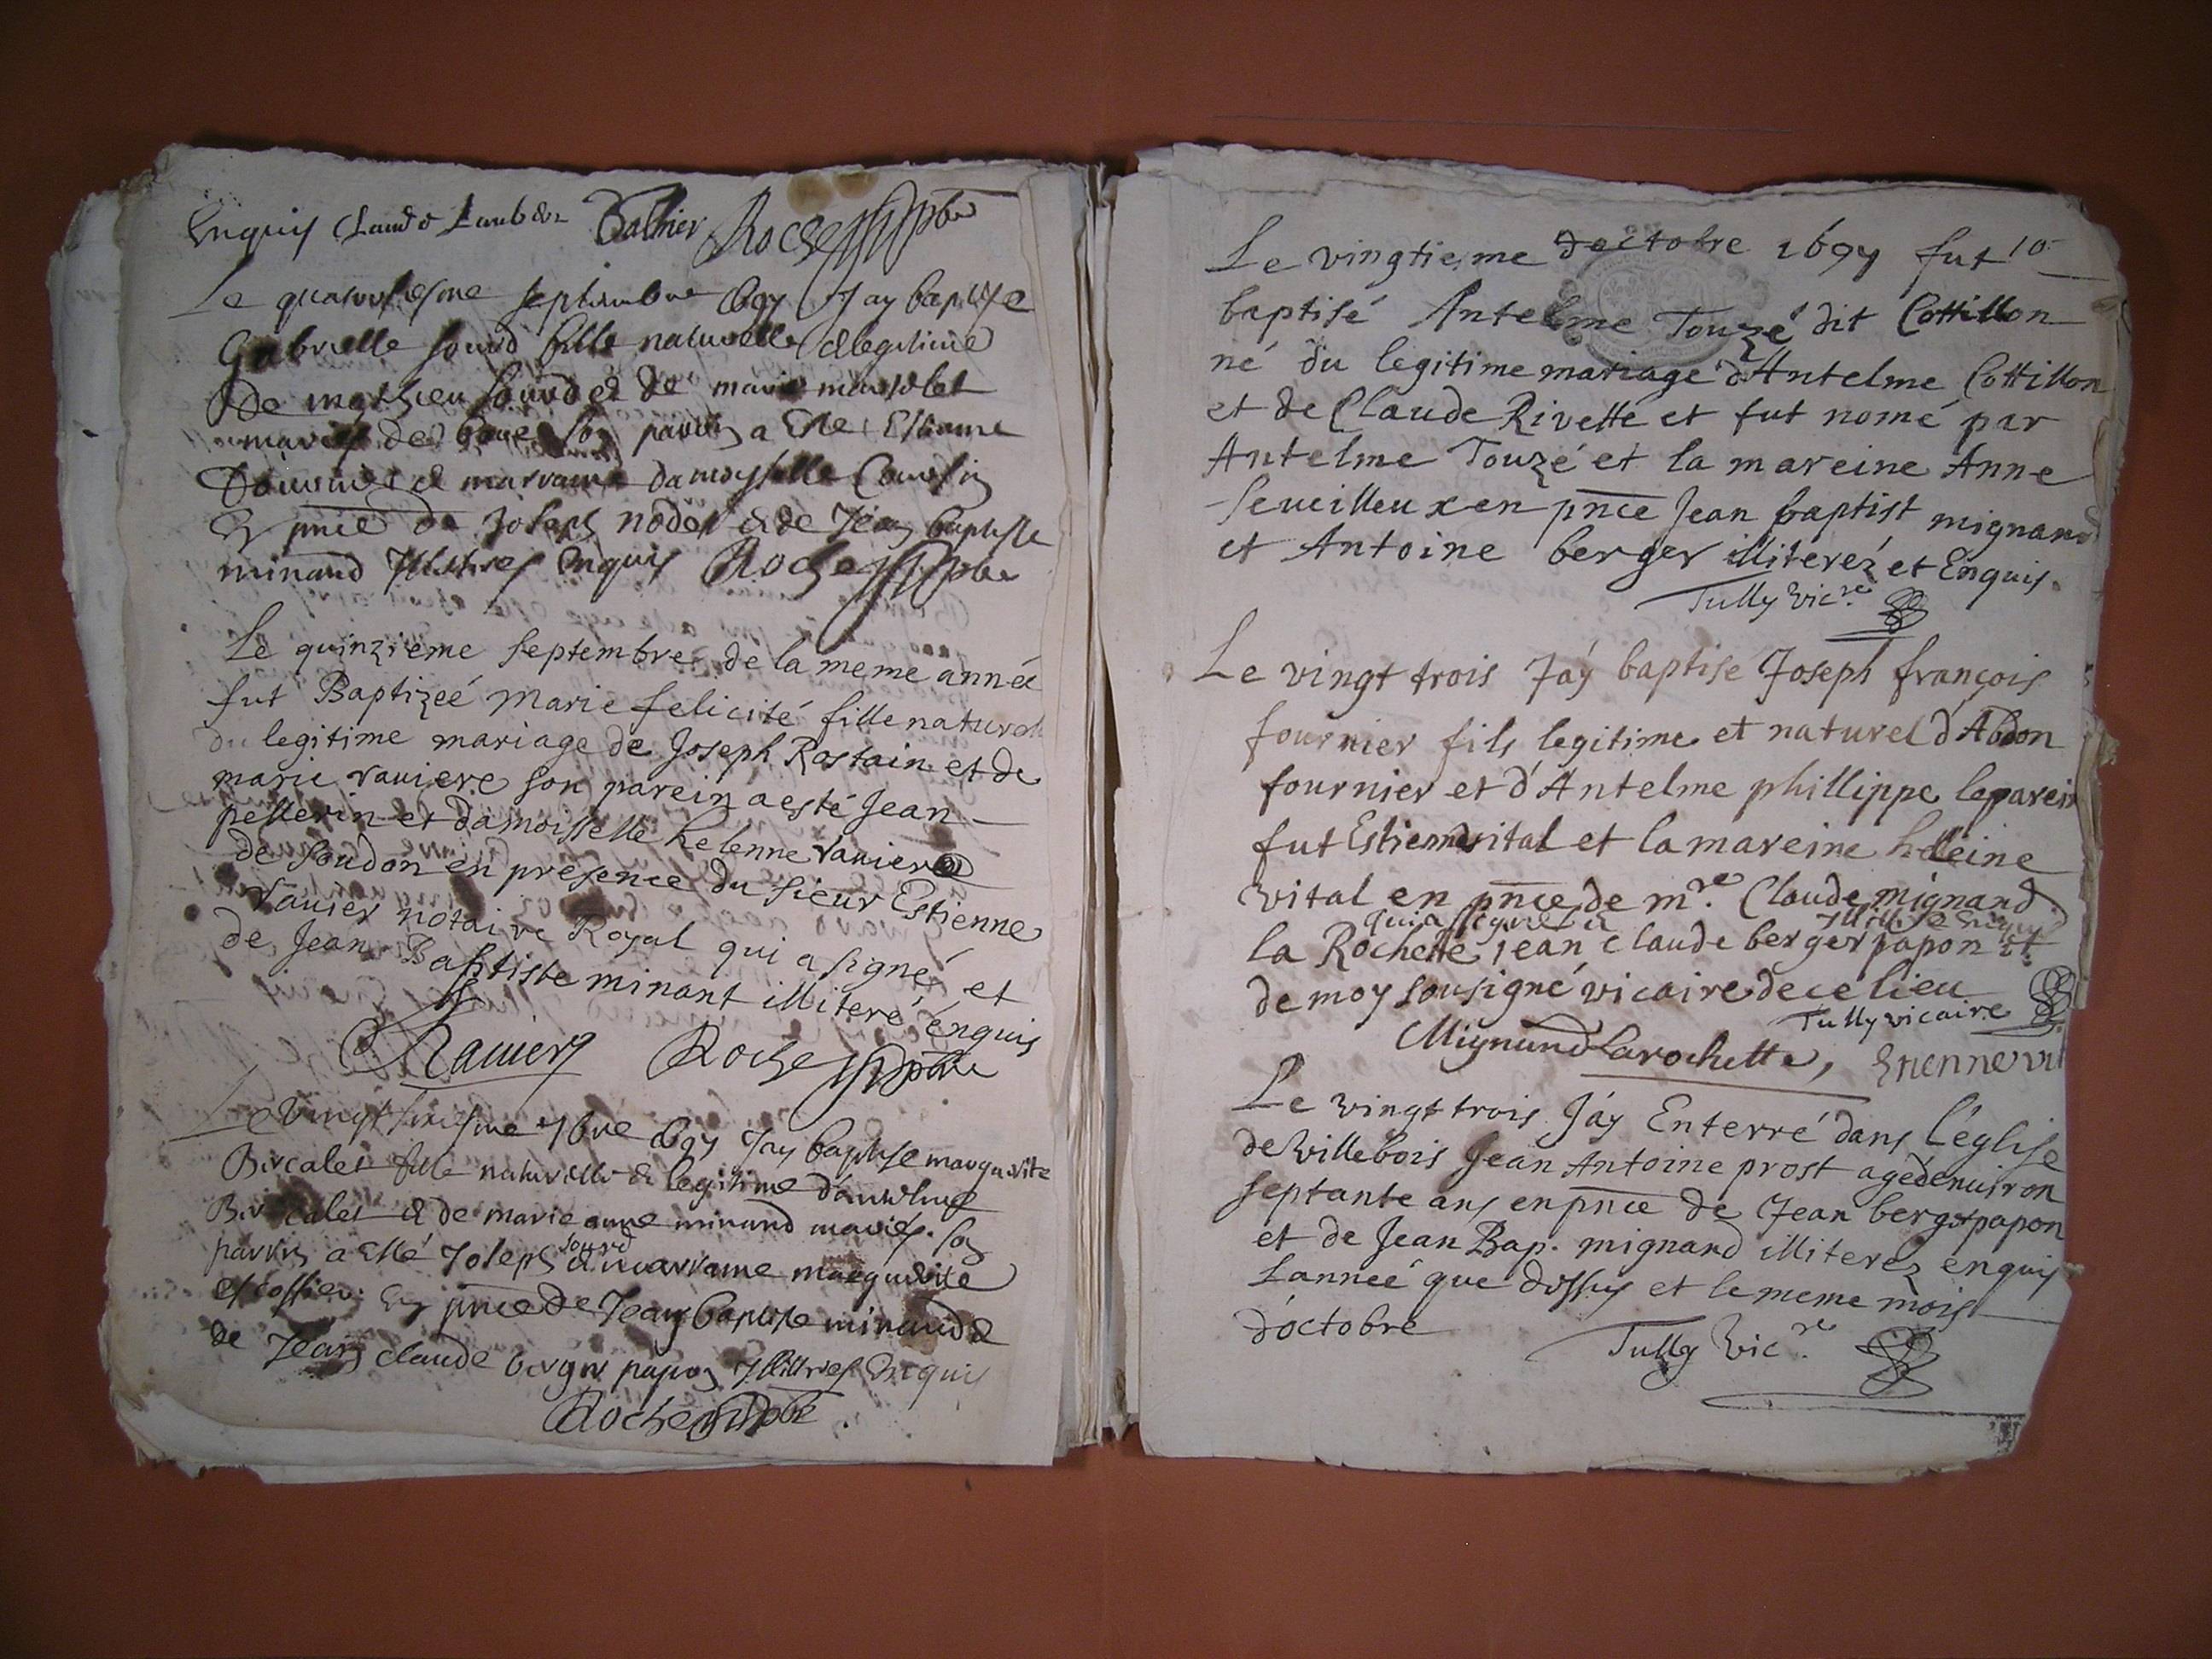 Enquis Claude Lambert Ballier Roche pbre
Le quatorsiesme septembre 1697 Jay baptise
Gabrielle sourd fille naturelle & legitime
De mathieu sourd & de marie
mariés de son parrin a esté Estienne
& marraine damoyselle
En pnce de Joseph nodet & de Jean baptiste
minand Illitires Enquis Roche pbre
Le quinzieme septembre de la meme année
fut Baptizeé Marie felicité fille naturelle
du legitime mariage de Joseph Rostain et de
marie raviere son parein a esté Jean
pellerin et damoisselle helenne raviere
de soudon en presence du sieur Estienne
ravier notaire Royal qui a signé et
de Jean Baptiste minant illiteré enquis
Ravier Roche pbre
Le vingt 7bre 1697 Jay baptise marguerite
fille naturelle & legitime
& de marie anne minand mariés. son
parrin a esté Joseph sourd & marraine marguerite
escossier En pnce de Jean baptiste minand &
de Jean claude berger papon Illitires Enquis
Roche pbre.
Le vingtieme doctobre 1697 fut 10
baptisé Antelme Touzé dit Cottillon
né du legitime mariage d'Antelme Cottillon
et de Claude Rivette et fut nomé par
Antelme Touzé et la mareine Anne
Seveilleux en pnce Jean baptist mignand
et Antoine berger illiterez et Enquis.
Tully vicre
Le vingt trois Jáy baptise Joseph françois
fournier fils legitime et naturel d'Abdon
fournier et d'Antelme phillippe le parein
fut Estienne vital et la mareine helleine
vital en pnce de mre. Claude mignand
qui a signé & illitire enquis
la Rochette jean claude berger papon et
de moy sousigné vicaire de ce lieu
Tully vicaire
Mignand Larochette, Etienne vit
Le vingt trois Jáy Enterré dans l'église
de villebois Jean Antoine prost agé denviron
septante ans en pnce de Jean berger papon
et de Jean Bap. mignand illiterez enquis
Lanneé que dessus et le meme mois
d'octobre
Tully vicre.